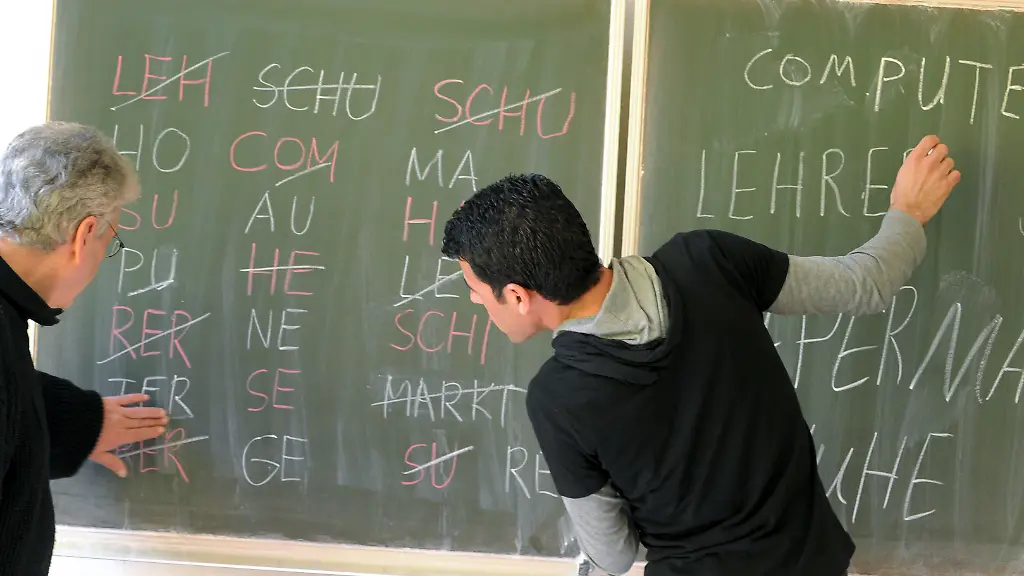 LEH SCHU SCHU
HO COM MA
SU AU H
PU HE LE
RER NE SCHI
TER SE MARKT
TER GE SU RE
COMPUTE
LEHRE
PERMA
UHE